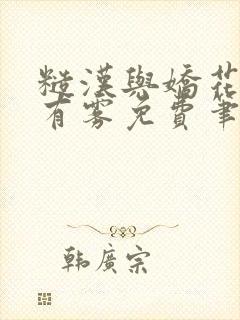 糙漢與嬌花
有雾免費筆
韩廣宗